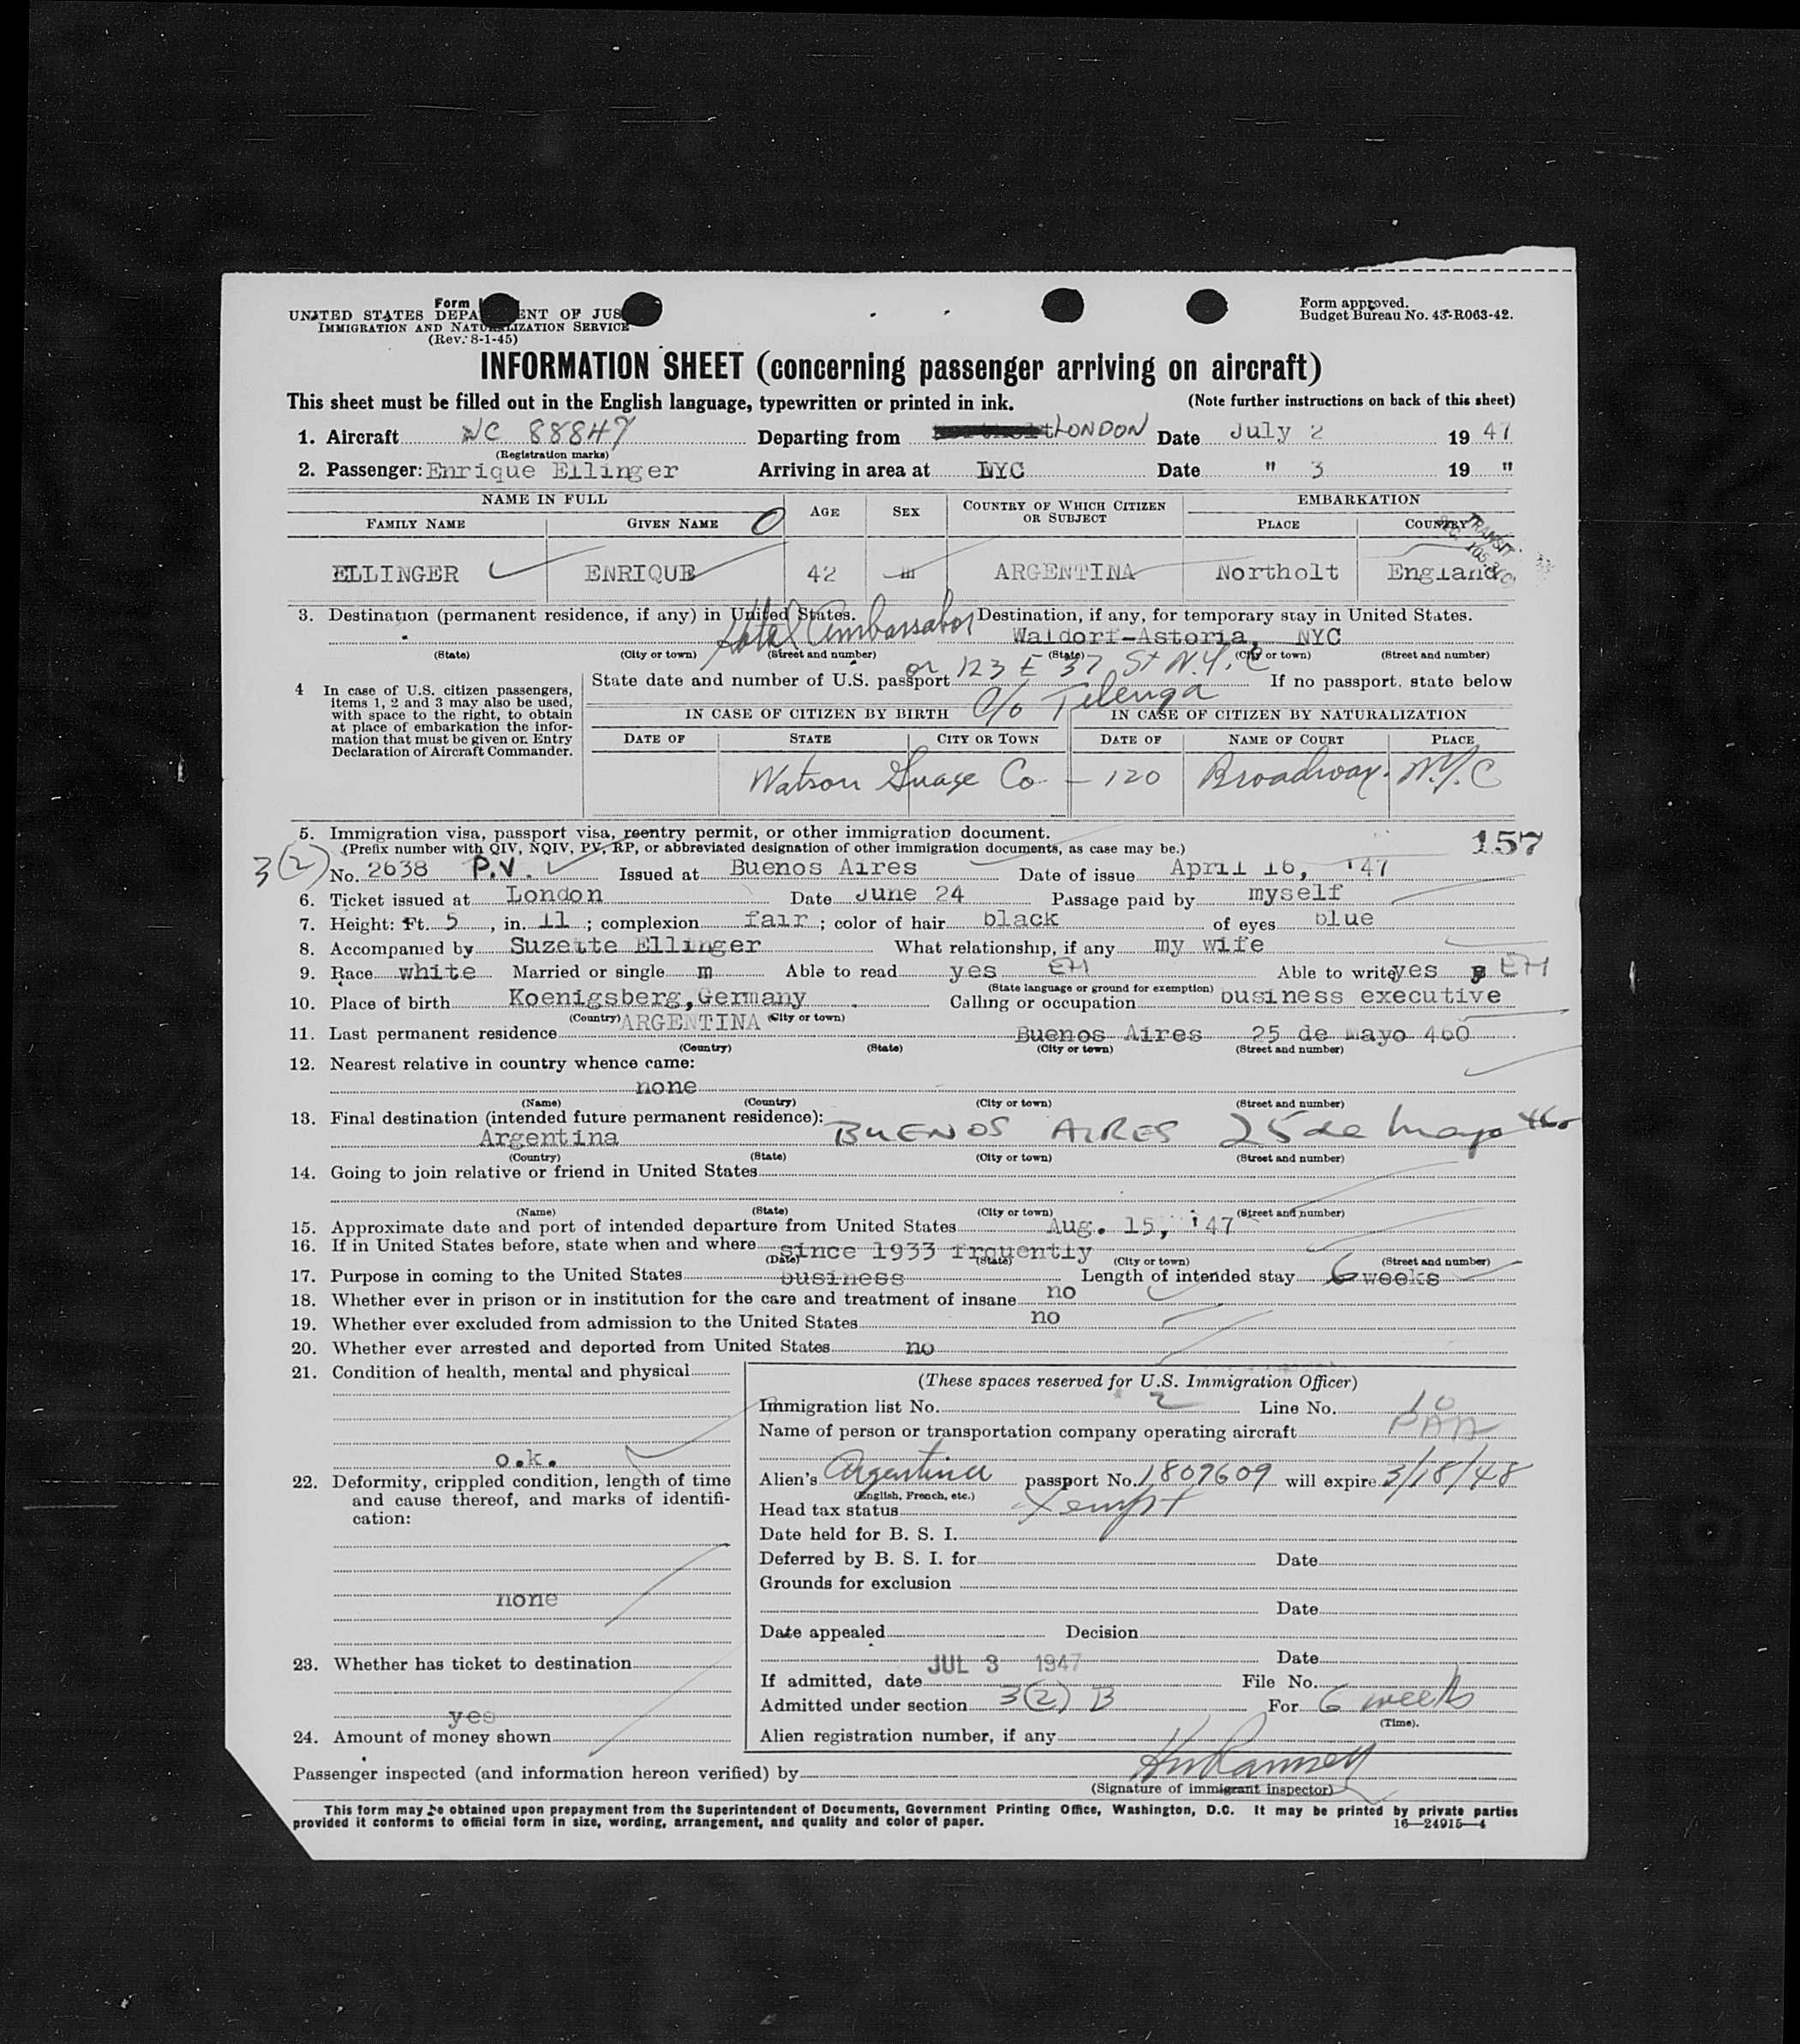 Form
UNITED STATES DEPA ENT OF JUS
IMMIGRATION AND NATURALIZATION SERVICE
(Rev. 8-1-45)
Form approved.
Budget Bureau No. 43-R063-42.
INFORMATION SHEET (concerning passenger arriving on aircraft)
This sheet must be filled out in the English language, typewritten or printed in ink. (Note further instructions on back of this sheet)
1. Aircraft NC 88847 Departing from LONDON Date July 2 19 47
(Registration marks)
2. Passenger: Enrique Ellinger Arriving in area at NYC Date " 3 19 "
NAME IN FULL AGE SEX COUNTRY OF WHICH CITIZEN OR SUBJECT EMBARKATION
FAMILY NAME GIVEN NAME PLACE COUNTRY
TRANSIT
ELLINGER ENRIQUE 42 m ARGENTINA Northolt England
3. Destination (permanent residence, if any) in United States. Destination, if any, for temporary stay in United States.
Hotel Ambassador Waldorf-Astoria, NYC
(State) (City or town) (Street and number) (State) (City or town) (Street and number)
or 123 E 37 St N.Y.C
4 In case of U.S. citizen passengers, items 1, 2 and 3 may also be used, with space to the right, to obtain at place of embarkation the information that must be given on Entry Declaration of Aircraft Commander.
State date and number of U.S. passport If no passport, state below
c/o
IN CASE OF CITIZEN BY BIRTH IN CASE OF CITIZEN BY NATURALIZATION
DATE OF STATE CITY OR TOWN DATE OF NAME OF COURT PLACE
Watson Co - 120 Broadway. N.Y.C
5. Immigration visa, passport visa, reentry permit, or other immigration document.
(Prefix number with QIV, NQIV, PV, RP, or abbreviated designation of other immigration documents, as case may be.)
157
3(2)
No. 2638 P.V. Issued at Buenos Aires Date of issue April 16, '47
6. Ticket issued at London Date June 24 Passage paid by myself
7. Height: Ft. 5, in. 11; complexion fair; color of hair black of eyes blue
8. Accompanied by Suzette Ellinger What relationship, if any my wife
9. Race white Married or single m Able to read yes EH Able to write yes EH
(State language or ground for exemption)
10. Place of birth Koenigsberg, Germany Calling or occupation business executive
(Country) (City or town)
11. Last permanent residence ARGENTINA Buenos Aires 25 de Mayo 460
(Country) (State) (City or town) (Street and number)
12. Nearest relative in country whence came:
none
(Name) (Country) (City or town) (Street and number)
13. Final destination (intended future permanent residence):
Argentina BUENOS AIRES 25 de Mayo 460
(Country) (State) (City or town) (Street and number)
14. Going to join relative or friend in United States
(Name) (State) (City or town) (Street and number)
15. Approximate date and port of intended departure from United States Aug. 15, '47
16. If in United States before, state when and where since 1933 frquently
(Date) (State) (City or town) (Street and number)
17. Purpose in coming to the United States business Length of intended stay 6 weeks
18. Whether ever in prison or in institution for the care and treatment of insane no
19. Whether ever excluded from admission to the United States no
20. Whether ever arrested and deported from United States no
21. Condition of health, mental and physical
o.k.
22. Deformity, crippled condition, length of time and cause thereof, and marks of identification:
none
23. Whether has ticket to destination
yes
24. Amount of money shown
(These spaces reserved for U.S. Immigration Officer)
Immigration list No. 2 Line No. 10
Name of person or transportation company operating aircraft PAA
Alien's Argentina passport No. 1807609 will expire 3/18/48
(English, French, etc.)
Head tax status Xempt
Date held for B. S. I.
Deferred by B. S. I. for Date
Grounds for exclusion
Date
Date appealed Decision
Date
If admitted, date JUL 3 1947 File No.
Admitted under section 3(2) B For 6 weeks
(Time).
Alien registration number, if any
Passenger inspected (and information hereon verified) by
(Signature of immigrant inspector)
This form may be obtained upon prepayment from the Superintendent of Documents, Government Printing Office, Washington, D.C. It may be printed by private parties
provided it conforms to official form in size, wording, arrangement, and quality and color of paper. 16—24915—4